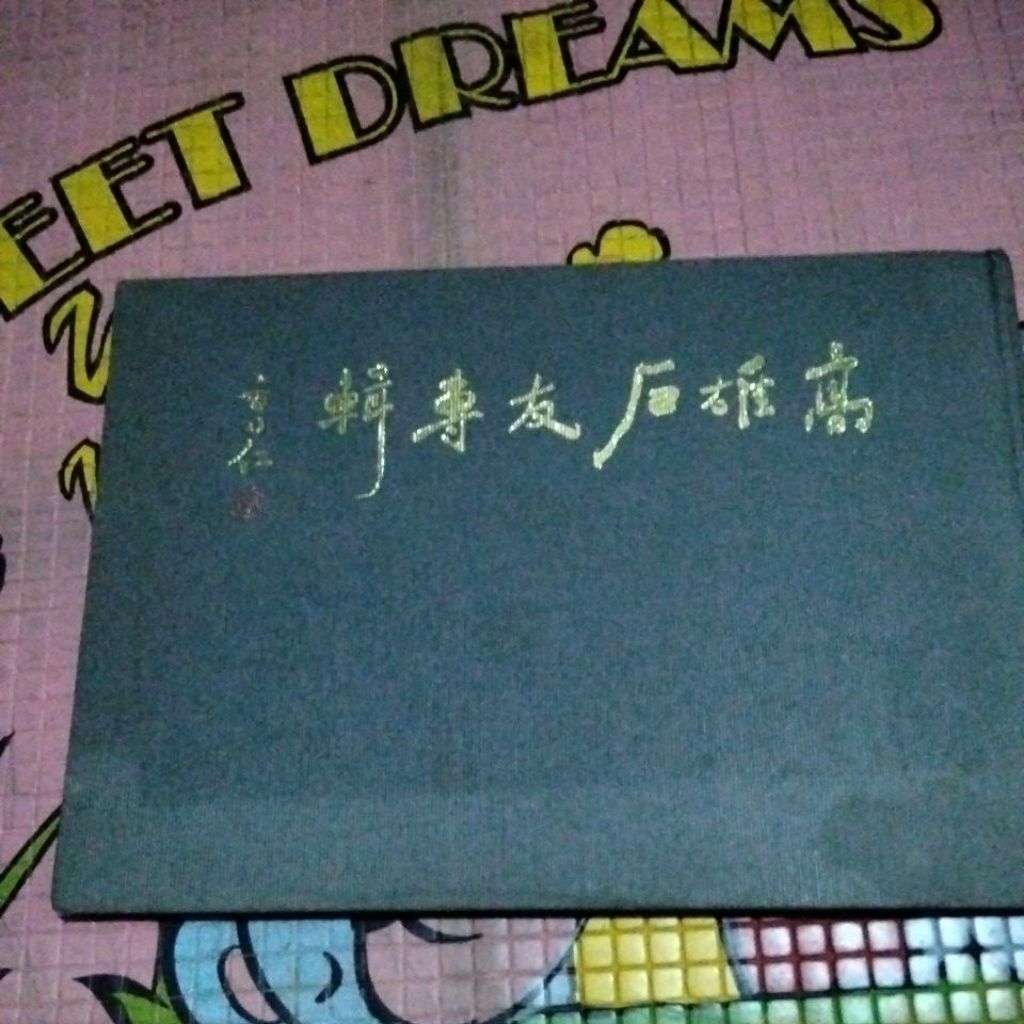 EET DREAMS
高雄石友專輯